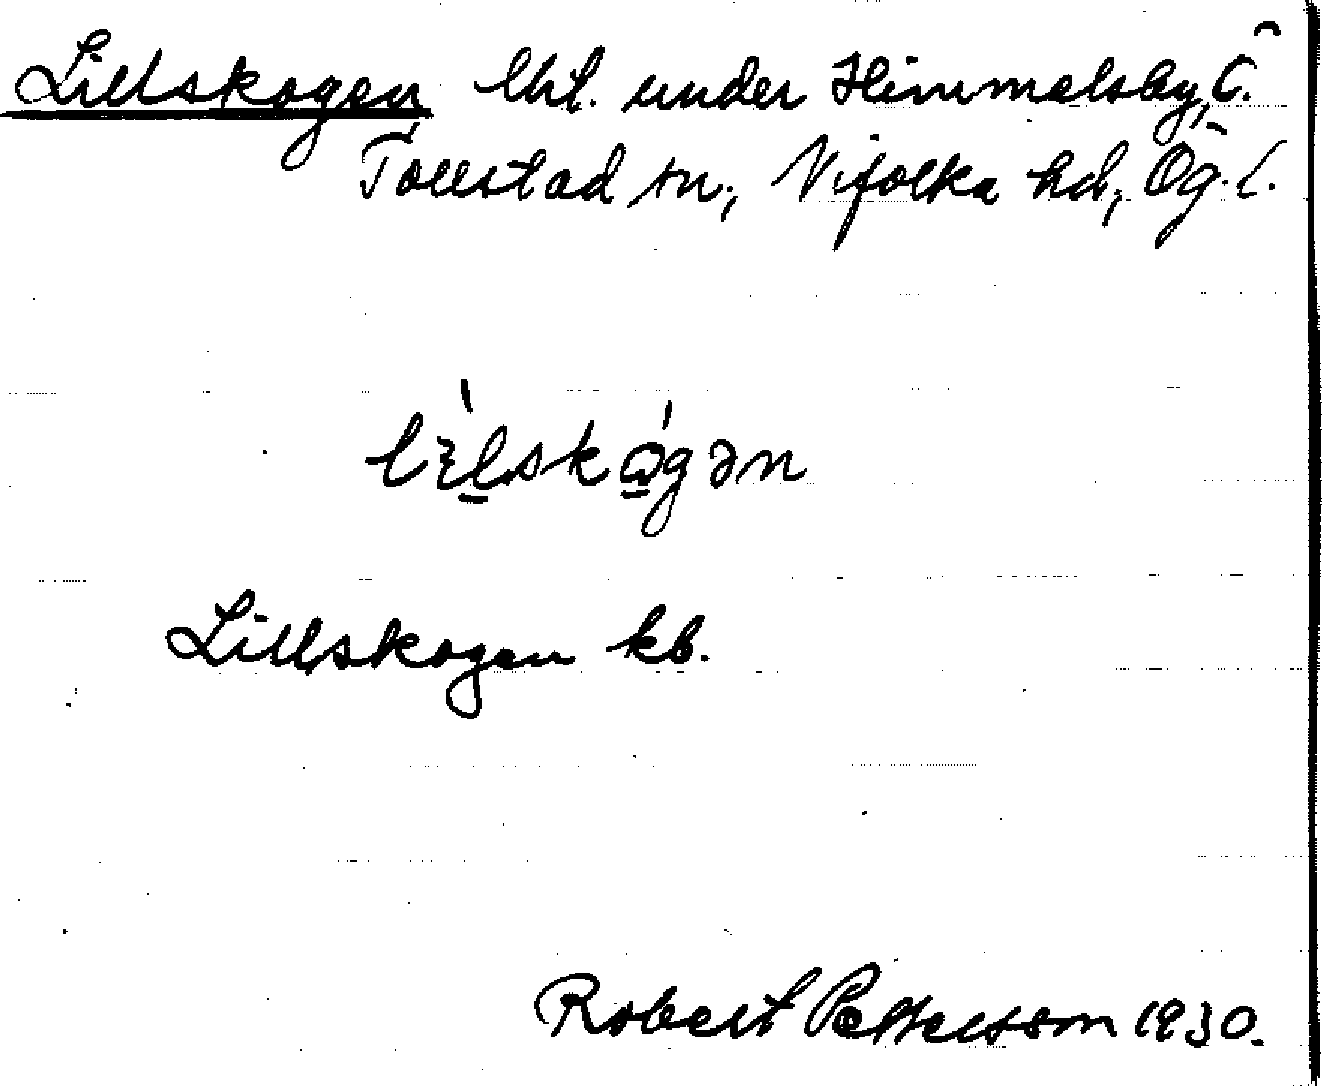 Lillskogen lht. under Himmelsby,
Tollstad sn, Vifolka hd, Ög. l.
Lillskogen kb.
Robert Pettersson 1930.